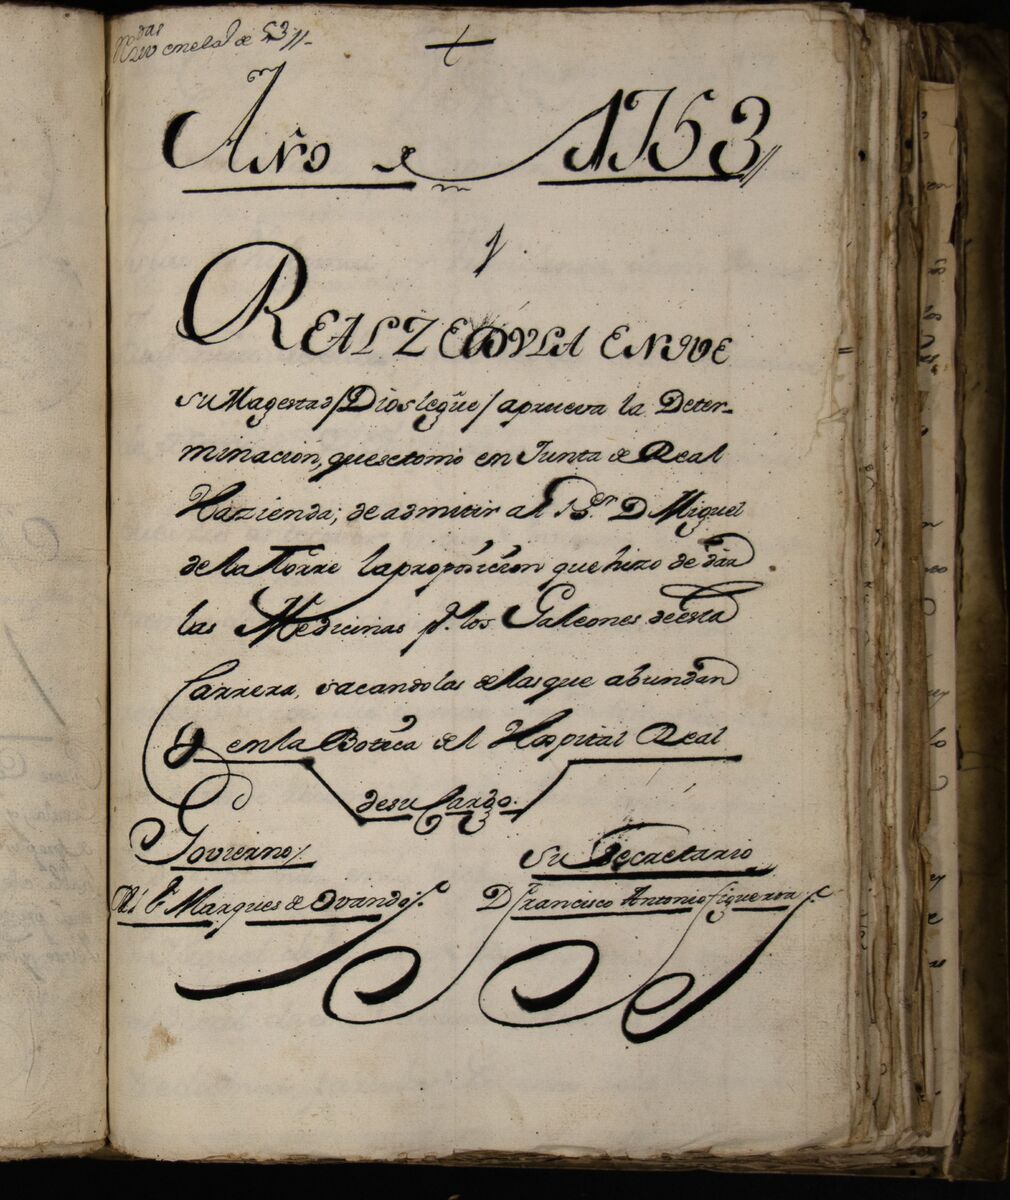 en el de 53//-
+
Año de 1753//
REAL ZEDVLA EN QVE
su Magestad/Dios le gũe/aprueva la Deter-
minacion, que se tomo en Junta de Real
Hazienda; de admitir al Sr. D Miguel
de la Torre la proposicion que hizo de dar
las Medicinas pa. los Galeones de esta
Carrera, sacandolas de las que abundan
en la Botica del Hospital Real
de su Cargo.
Govierno/.
El Sr Marques de Ovando/.
su Secretario
Dn Francisco Antonio Figueroa/.